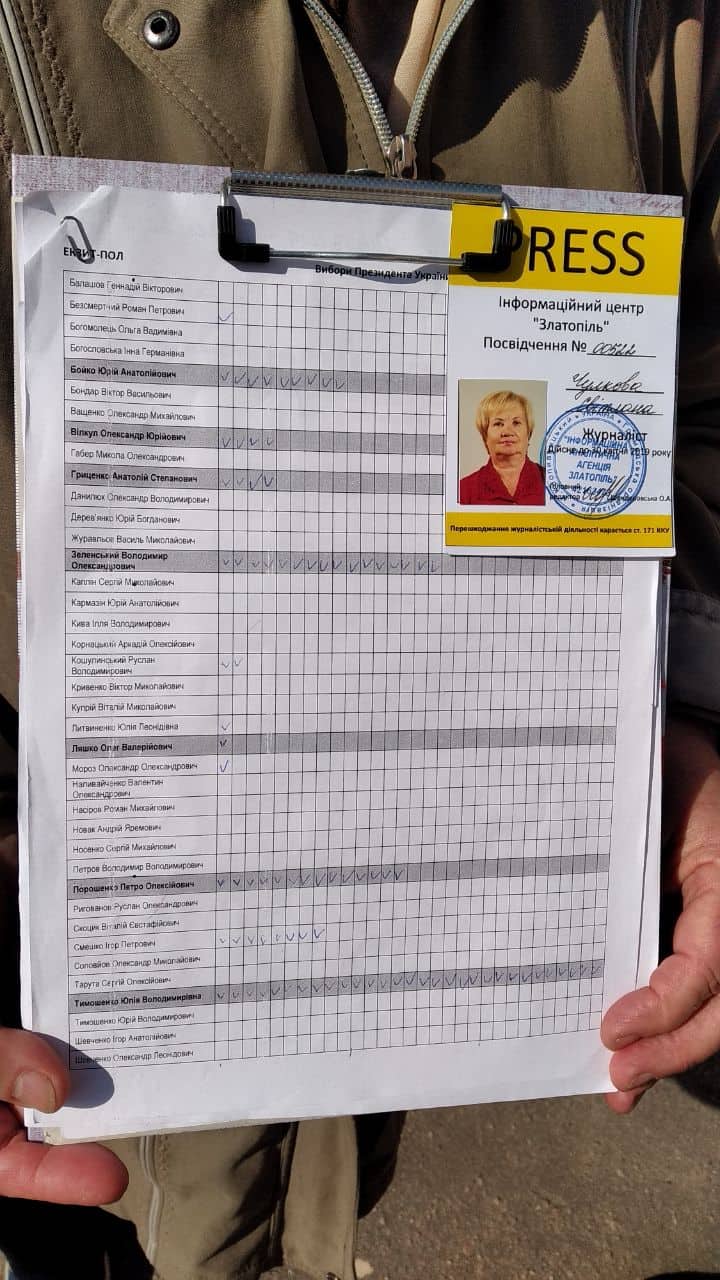 ЕКЗИТ-ПОЛ
Вибори Президента України
Балашов Геннадій Вікторович
Безсмертний Роман Петрович
Богомолець Ольга Вадимівна
Богословська Інна Германівна
Бойко Юрій Анатолійович
Бондар Віктор Васильович
Ващенко Олександр Михайлович
Вілкул Олександр Юрійович
Габер Микола Олександрович
Гриценко Анатолій Степанович
Данилюк Олександр Володимирович
Дерев'янко Юрій Богданович
Журавльов Василь Миколайович
Зеленський Володимир
Олександрович
Каплін Сергій Миколайович
Кармазін Юрій Анатолійович
Кива Ілля Володимирович
Корнацький Аркадій Олексійович
Кошулинський Руслан
Володимирович
Кривенко Віктор Миколайович
Купрій Віталій Миколайович
Литвиненко Юлія Леонідівна
Ляшко Олег Валерійович
Мороз Олександр Олександрович
Наливайченко Валентин
Олександрович
Насіров Роман Михайлович
Новак Андрій Яремович
Носенко Сергій Михайлович
Петров Володимир Володимирович
Порошенко Петро Олексійович
Ригованов Руслан Олександрович
Скоцик Віталій Євстафійович
Смешко Ігор Петрович
Соловйов Олександр Миколайович
Тарута Сергій Олексійович
Тимошенко Юлія Володимирівна
Тимошенко Юрій Володимирович
Шевченко Ігор Анатолійович
Шевченко Олександр Леонідович
PRESS
Інформаційний центр
"Златопіль"
Посвідчення № 00522
Чулкова
Світлана
Журналіст
Дійсне до 30 квітня 2019 року
"ІНФОРМАЦІЙНА
АНАЛІТИЧНА
АГЕНЦІЯ
ЗЛАТОПІЛЬ"
редактор
Перешкоджання журналістській діяльності карається ст. 171 ККУ